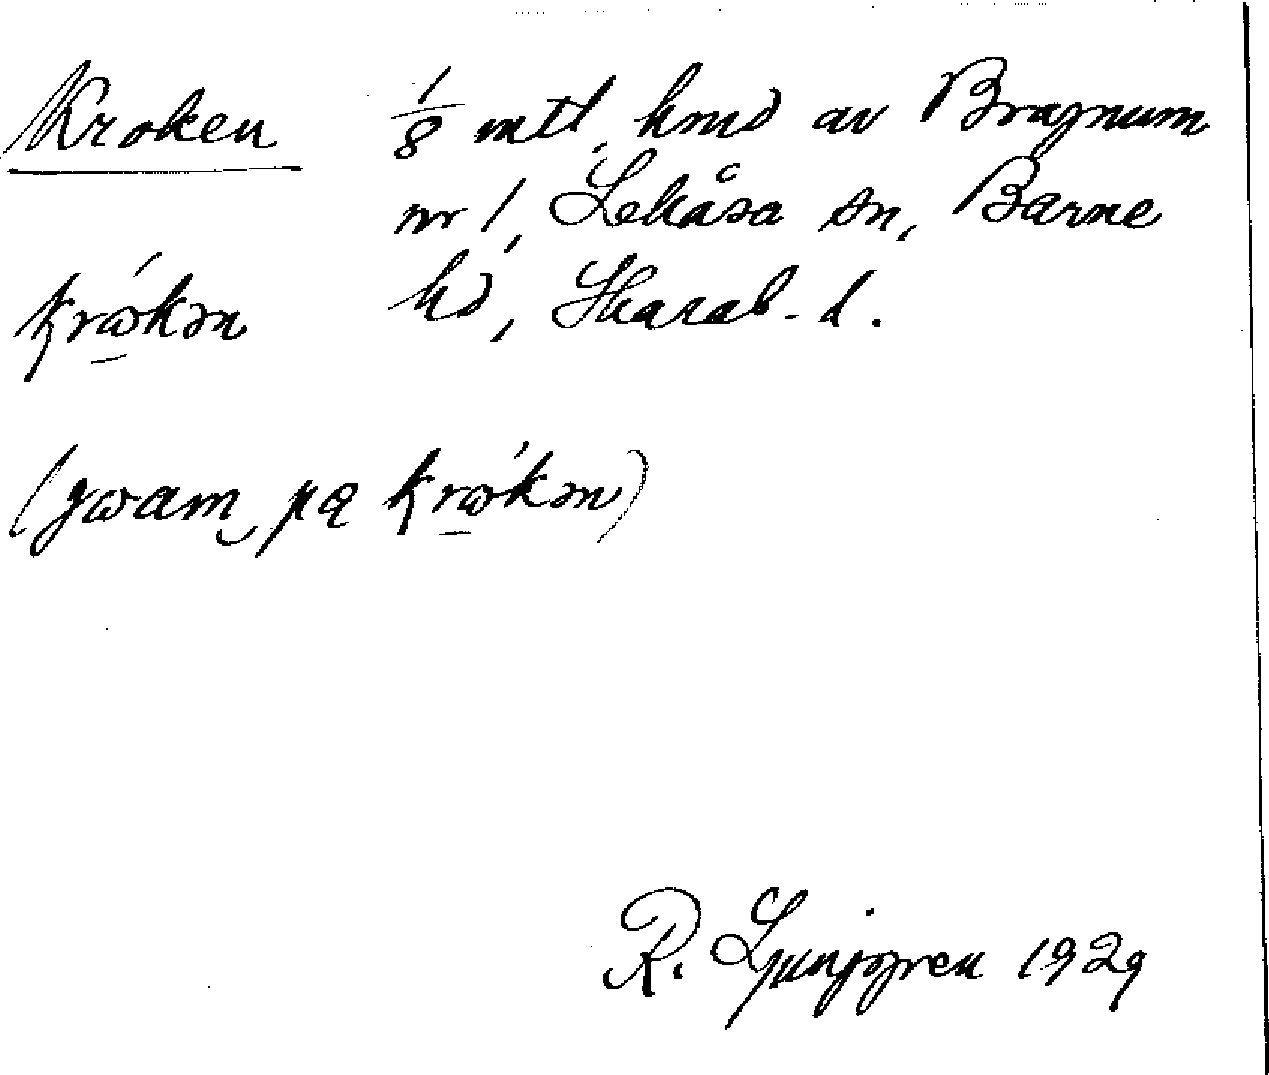 Kroken 1/8 mtl, hmd av Bragnum
nr 1, Lekåsa sn, Barne
krɷ́kən hd, Skarab. l.
(gɷam pą krɷ́kən)
R. Ljunggren 1929